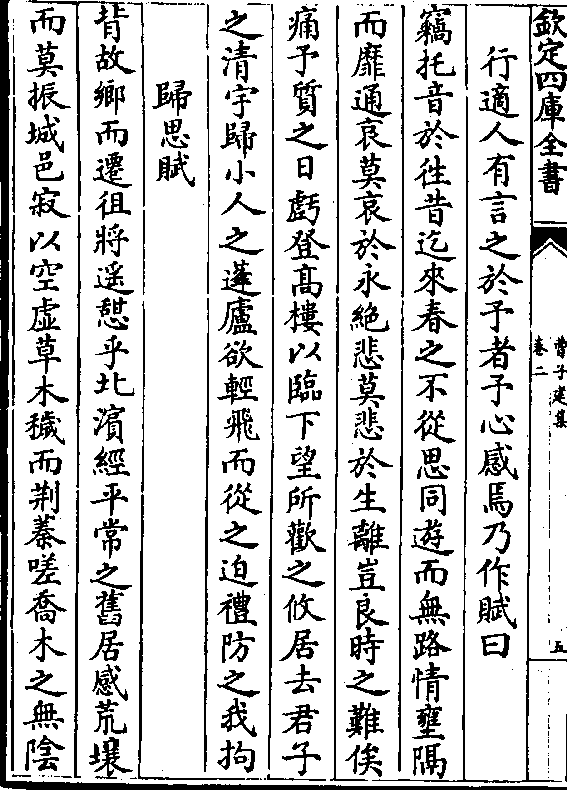 欽定四庫全書
曹子建集
卷二
五
行適人有言之於予者予心感焉乃作賦曰
竊托音於徃昔迄來春之不從思同遊而無路情壅隔
而靡通哀莫哀於永絶悲莫悲於生離豈良時之難俟
痛予質之日虧登髙樓以臨下望所歡之攸居去君子
之清宇歸小人之蓬廬欲輕飛而從之迫禮防之我拘
歸思賦
背故鄉而遷徂將遥憇乎北濵經平常之舊居感荒壤
而莫振城邑寂以空虚草木穢而荆蓁嗟喬木之無隂